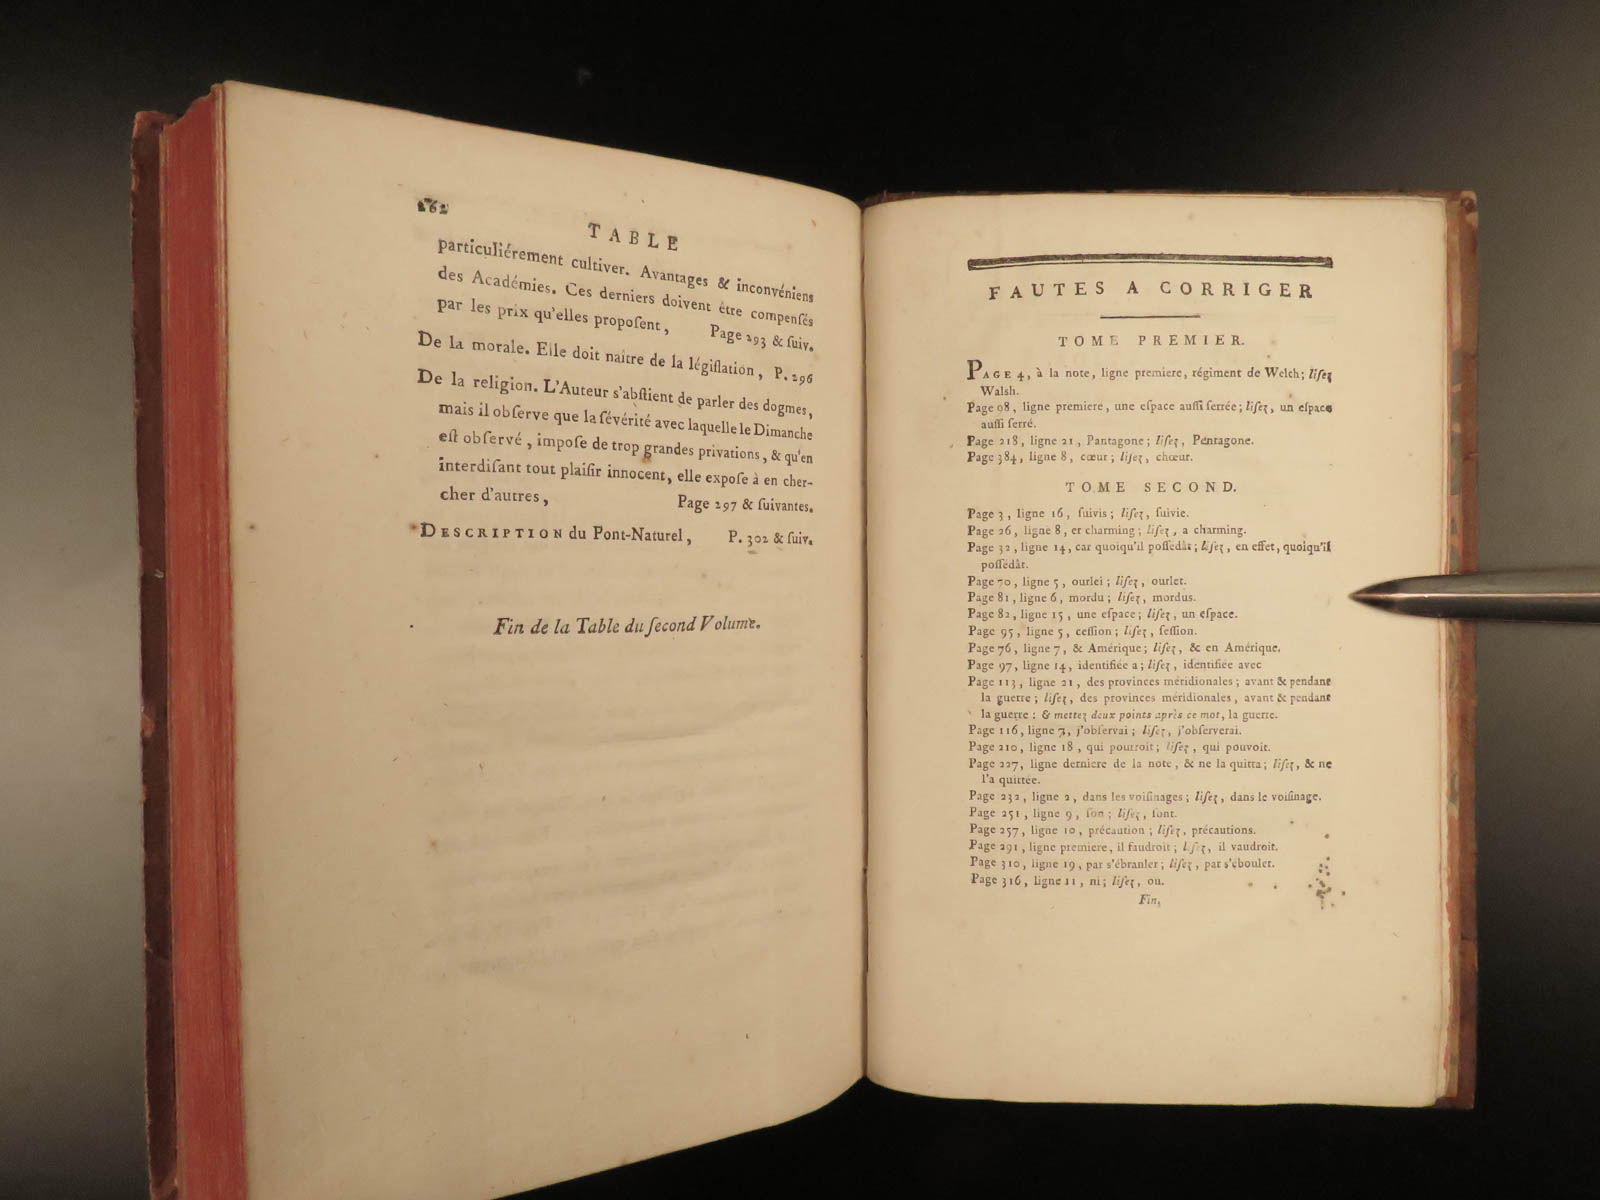 TABLE
particuliérement cultiver. Avantages & inconvéniens
des Académies. Ces derniers doivent être compenſés
par les prix qu'elles propoſent, Page 293 & ſuiv.
De la morale. Elle doit naitre de la légiſlation, P. 296
De la religion. L'Auteur s'abſtient de parler des dogmes,
mais il obſerve que la ſévérité avec laquelle le Dimanche
eſt obſervé, impoſe de trop grandes privations, & qu'en
interdiſant tout plaiſir innocent, elle expoſe à en cher-
cher d'autres, Page 297 & ſuivantes.
DESCRIPTION du Pont-Naturel, P. 302 & ſuiv.
Fin de la Table du ſecond Volume.
FAUTES A CORRIGER
TOME PREMIER.
PAGE 4, à la note, ligne premiere, régiment de Welch; liſez
Walsh.
Page 98, ligne premiere, une eſpace auſſi ſerrée; liſez, un eſpace
auſſi ſerré.
Page 218, ligne 21, Pantagone; liſez, Pentagone.
Page 384, ligne 8, cœur; liſez, chœur.
TOME SECOND.
Page 3, ligne 16, ſuivis; liſez, ſuivie.
Page 26, ligne 8, er charming; liſez, a charming.
Page 32, ligne 14, car quoiqu'il poſſédât; liſez, en effet, quoiqu'il
poſſédât.
Page 70, ligne 5, ourlei; liſez, ourlet.
Page 81, ligne 6, mordu; liſez, mordus.
Page 82, ligne 15, une eſpace; liſez, un eſpace.
Page 95, ligne 5, ceſſion; liſez, ſeſſion.
Page 76, ligne 7, & Amérique; liſez, & en Amérique.
Page 97, ligne 14, identifiée a; liſez, identifiée avec
Page 113, ligne 21, des provinces méridionales; avant & pendant
la guerre; liſez, des provinces méridionales, avant & pendant
la guerre: & mettez deux points après ce mot, la guerre.
Page 116, ligne 7, j'obſervai; liſez, j'obſerverai.
Page 210, ligne 18, qui pourroit; liſez, qui pouvoit.
Page 227, ligne derniere de la note, & ne la quitta; liſez, & ne
l'a quittée.
Page 232, ligne 2, dans les voiſinages; liſez, dans le voiſinage.
Page 251, ligne 9, ſon; liſez, ſont.
Page 257, ligne 10, précaution; liſez, précautions.
Page 291, ligne premiere, il faudroit; liſez, il vaudroit.
Page 310, ligne 19, par s'ébranler; liſez, par s'ébouler.
Page 316, ligne 11, ni; liſez, ou.
Fin,